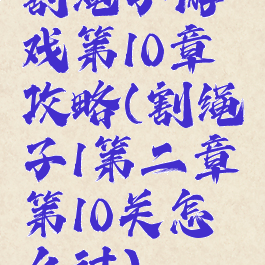 割绳子游
戏第10章
攻略(割绳
子1第二章
第10关怎
么过)